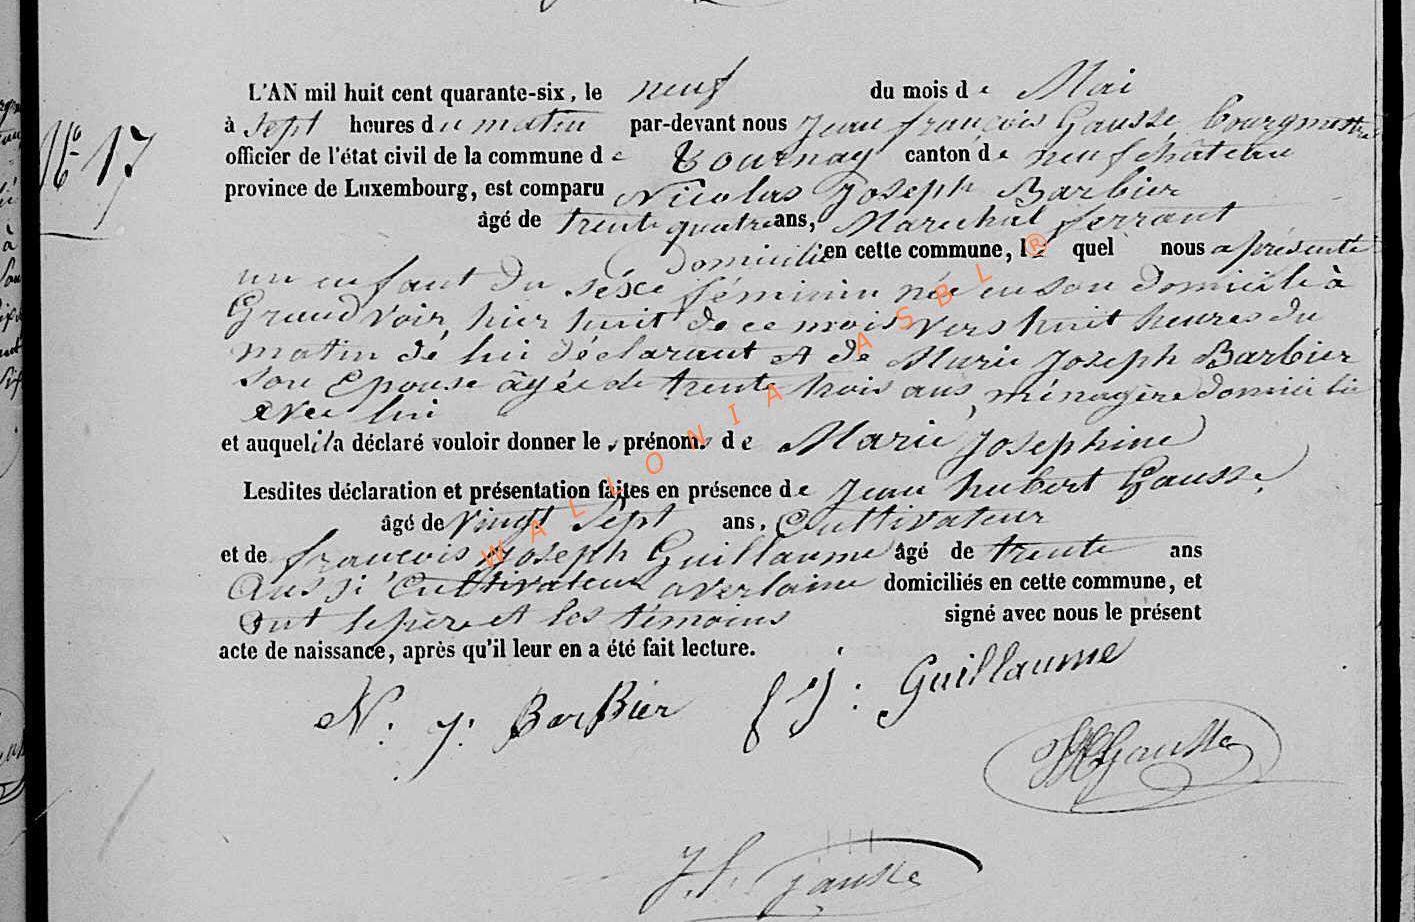 L'AN mil huit cent quarante-six, le neuf du mois de Mai
N° 17
à Sept heures du matin par-devant nous Jean françois Gausse bourgmestre
officier de l'état civil de la commune de Tournay canton de neufchâteau
province de Luxembourg, est comparu Nicolas Joseph Barbier
âgé de trente quatre ans, Marechal ferrant
domicilié en cette commune, le quel nous a présenté
un enfant du séxe féminin née en son domicile à
Grandvoir, hier huit de ce mois vers huit heures du
matin de lui déclarant et de Marie Joseph Barbier
son Epouse âgée de trente trois ans, ménagère domicilié
avec lui
et auquel il a déclaré vouloir donner les prénoms de Marie Josephine
Lesdites déclaration et présentation faites en présence de Jean hubert Gausse,
âgé de vingt Sept ans, Cultivateur
et de francois Joseph Guillaume âgé de trente ans
Aussi Cultivateur a verlaine domiciliés en cette commune, et
Ont le père et les témoins signé avec nous le présent
acte de naissance, après qu'il leur en a été fait lecture.
N. J. BarBier f J. Guillaume
JHGausse
J. f. Gausse
WALLONIA ASBL ®